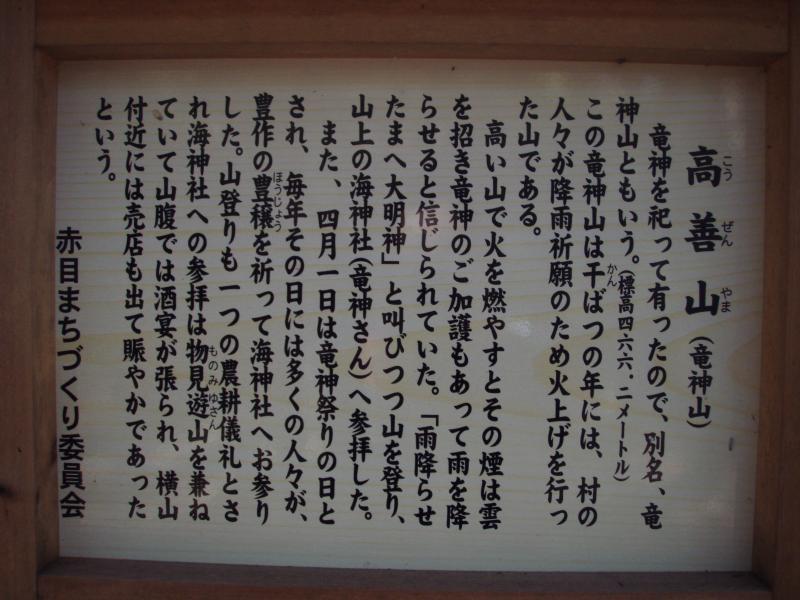 高善山(竜神山)
こう ぜん やま
竜神を祀って有ったので、別名、竜
神山ともいう。(標高四六六.二メートル)
この竜神山は干ばつの年には、村の
かん
人々が降雨祈願のため火上げを行っ
た山である。
高い山で火を燃やすとその煙は雲
を招き竜神のご加護もあって雨を降
らせると信じられていた。「雨降らせ
たまへ大明神」と叫びつつ山を登り、
山上の海神社(竜神さん)へ参拝した。
また、四月一日は竜神祭りの日と
され、毎年その日には多くの人々が、
豊作の豊穣を祈って海神社へお参り
ほうじょう
した。山登りも一つの農耕儀礼とさ
れ海神社への参拝は物見遊山を兼ね
ものみ ゆさん
ていて山腹では酒宴が張られ、横山
付近には売店も出て賑やかであった
という。
赤目まちづくり委員会